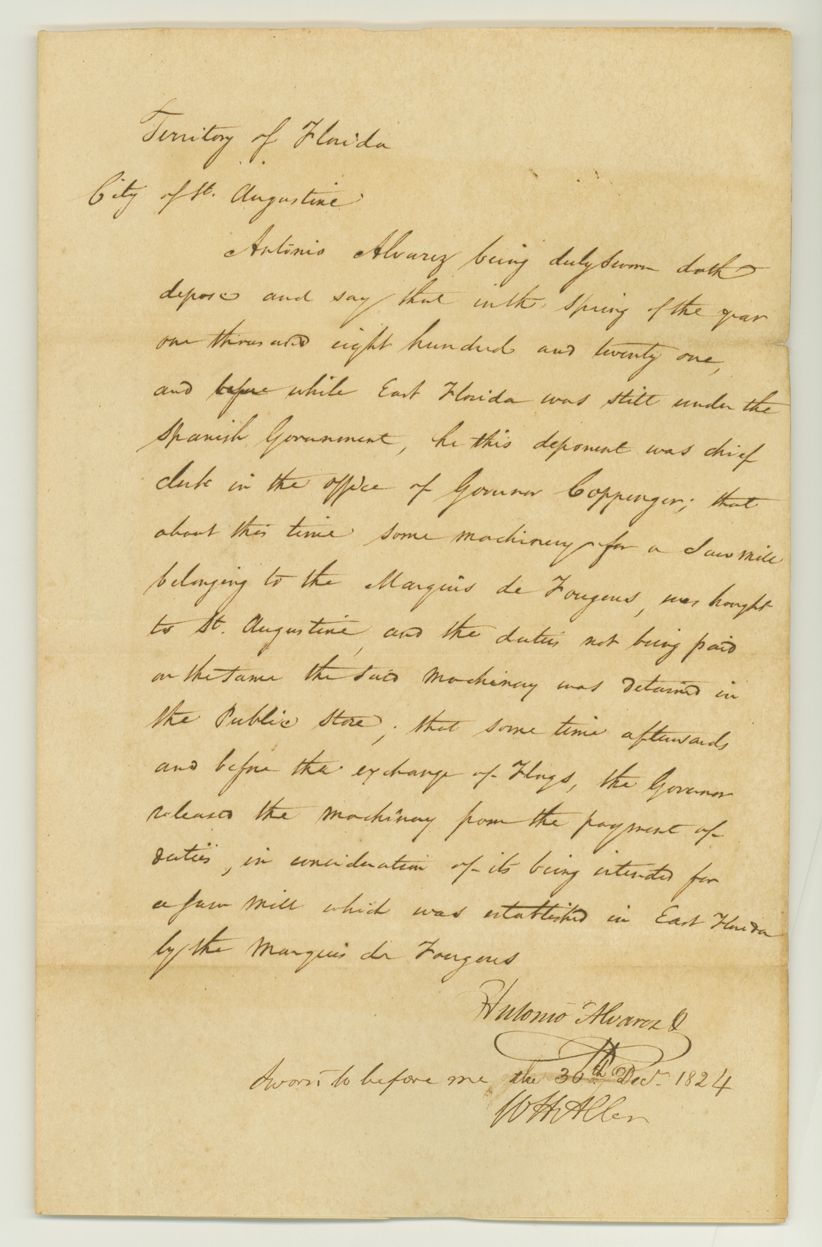 Territory of Florida
City of St. Augustine
Antonio Alvarez being duly sworn doth
depose and say that in the Spring of the year
one thousand eight hundred and twenty one,
and before while East Florida was still under the
Spanish Government, he this deponent was chief
clerk in the office of Governor Coppinger; that
about this time some machinery for a Saw mill
belonging to the Marquis de Fougeres, was brought
to St. Augustine, and the duties not being paid
on the same the said machinery was detained in
the Public Store; that some time afterwards
and before the exchange of Flags, the Governor
released the machinery from the payment of
duties, in consideration of its being intended for
a Saw mill which was established in East Florida
by the Marquis de Fougeres
Antonio Alvarez
Sworn to before me the 30th Decr. 1824
W H Allen